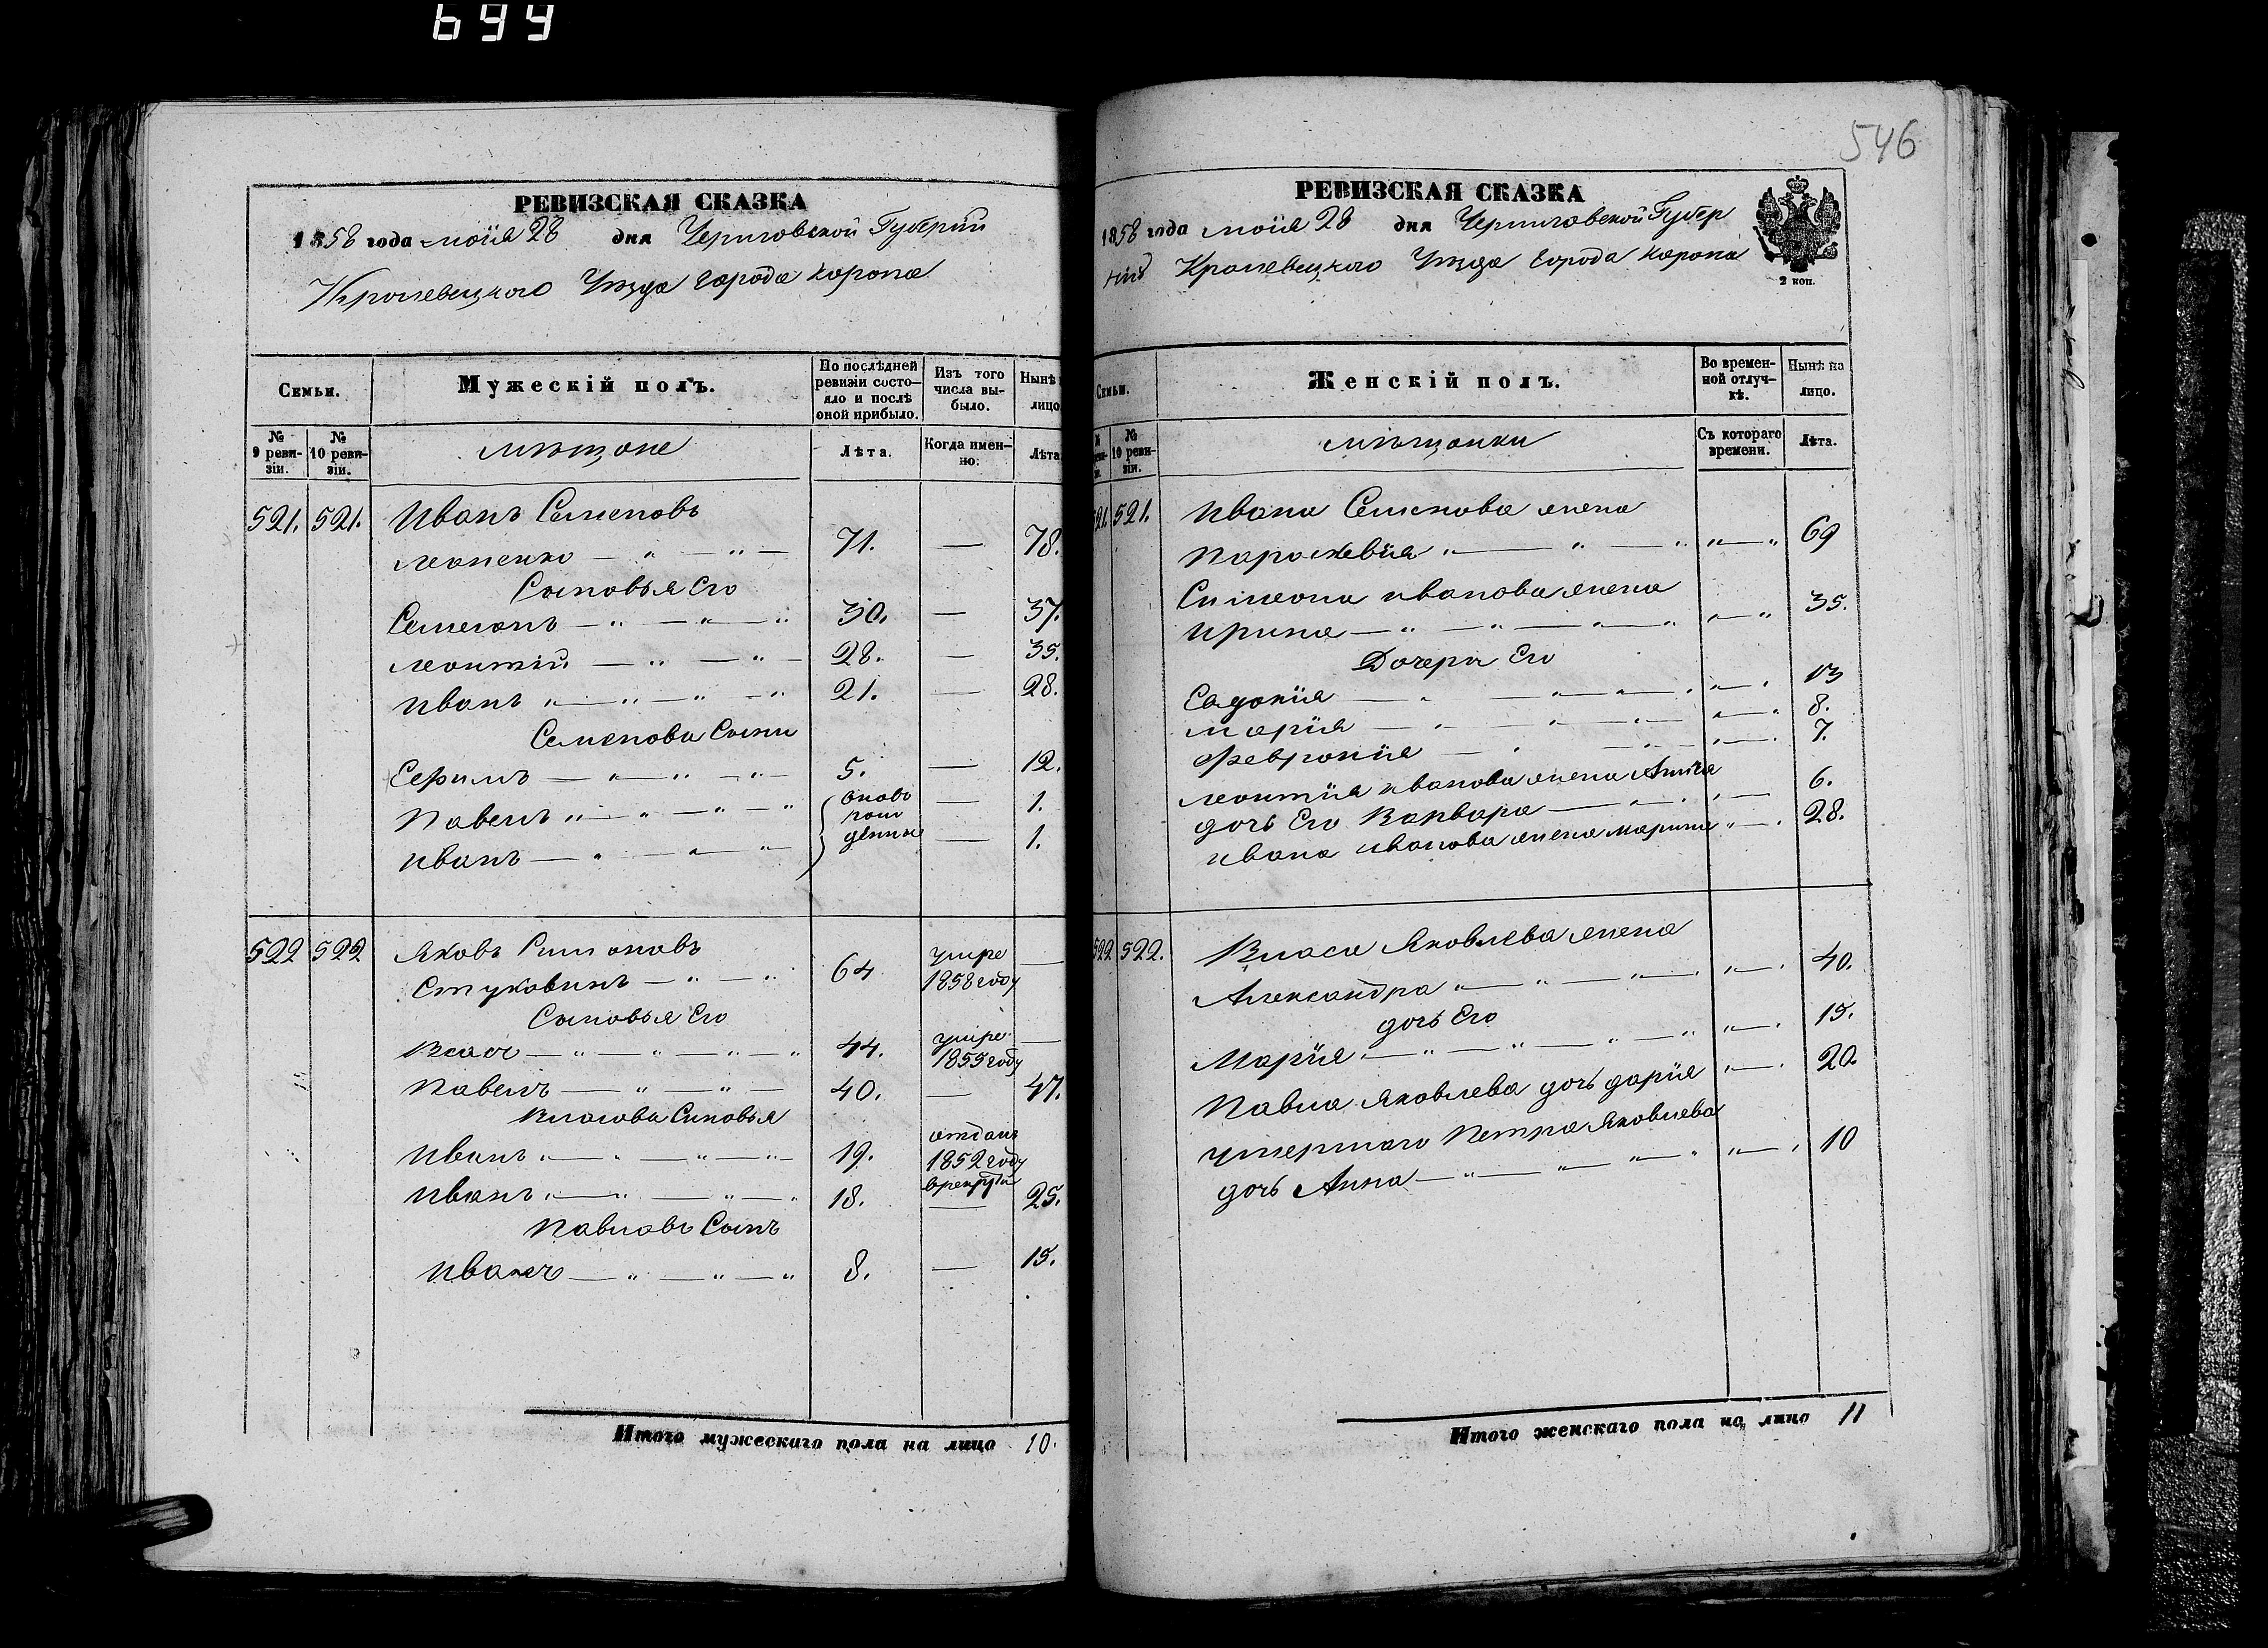 699
РЕВИЗСКАЯ СКАЗКА
1858 года мая 28 дня Черниговской Губернии
Кролевецкого Уѣзда города Коропа
Семьи.
Мужескій полъ.
По послѣдней ревизіи состояло и послѣ оной прибыло.
Изъ того числа выбыло.
Нынѣ
лицо
№ 9 ревизіи.
№ 10 ревизіи.
мѣщане
Лѣта.
Когда именно:
Лѣта
521. 521. Иванъ Семеновъ
71. — 78.
Сыновья Его
Семеонъ 30. — 37.
Леонтій 28. — 35.
Иванъ 21. — 28.
Семенова Сыни
Еѳримъ 5. — 12.
Павелъ — 1.
Иванъ — 1.
522 522 Яковъ Симоновъ
Стуковинъ 64 умре 1858 году —
Сыновья Его
Власъ 44. умре 1855 году —
Павелъ 40. — 47.
Власова Сыновья
Иванъ 19. отданъ 1852 году
Иванъ 18. — 25.
Павловъ Сынъ
Иванъ 8. — 15.
Итого мужескаго пола на лицо 10.
546
РЕВИЗСКАЯ СКАЗКА
1858 года мая 28 дня Черниговской Губер
ніи Кролевецкого Уѣзда города Коропа
2 коп.
Семьи.
Женскій полъ.
Во временной отлучкѣ.
Нынѣ на лицо.
№ 10 ревизіи.
мѣщанки
Съ котораго времени.
Лѣта.
521. 521. Ивана Семенова жена
Параскевія 69
Симеона Иванова жена
Ирина 35.
Дочери Его
Евдокія 13
Марія 8.
Февронія 7.
Леонтія Иванова жена
дочь Его Варвара 6.
Ивана Иванова жена Марина 28.
522 522. Власа Яковлева жена
Александра 40.
дочь Его
Марія 15.
Павла Яковлева дочь Дарія 20.
умершаго Петра Яковлева
дочь Анна 10
Итого женскаго пола на лицо 11